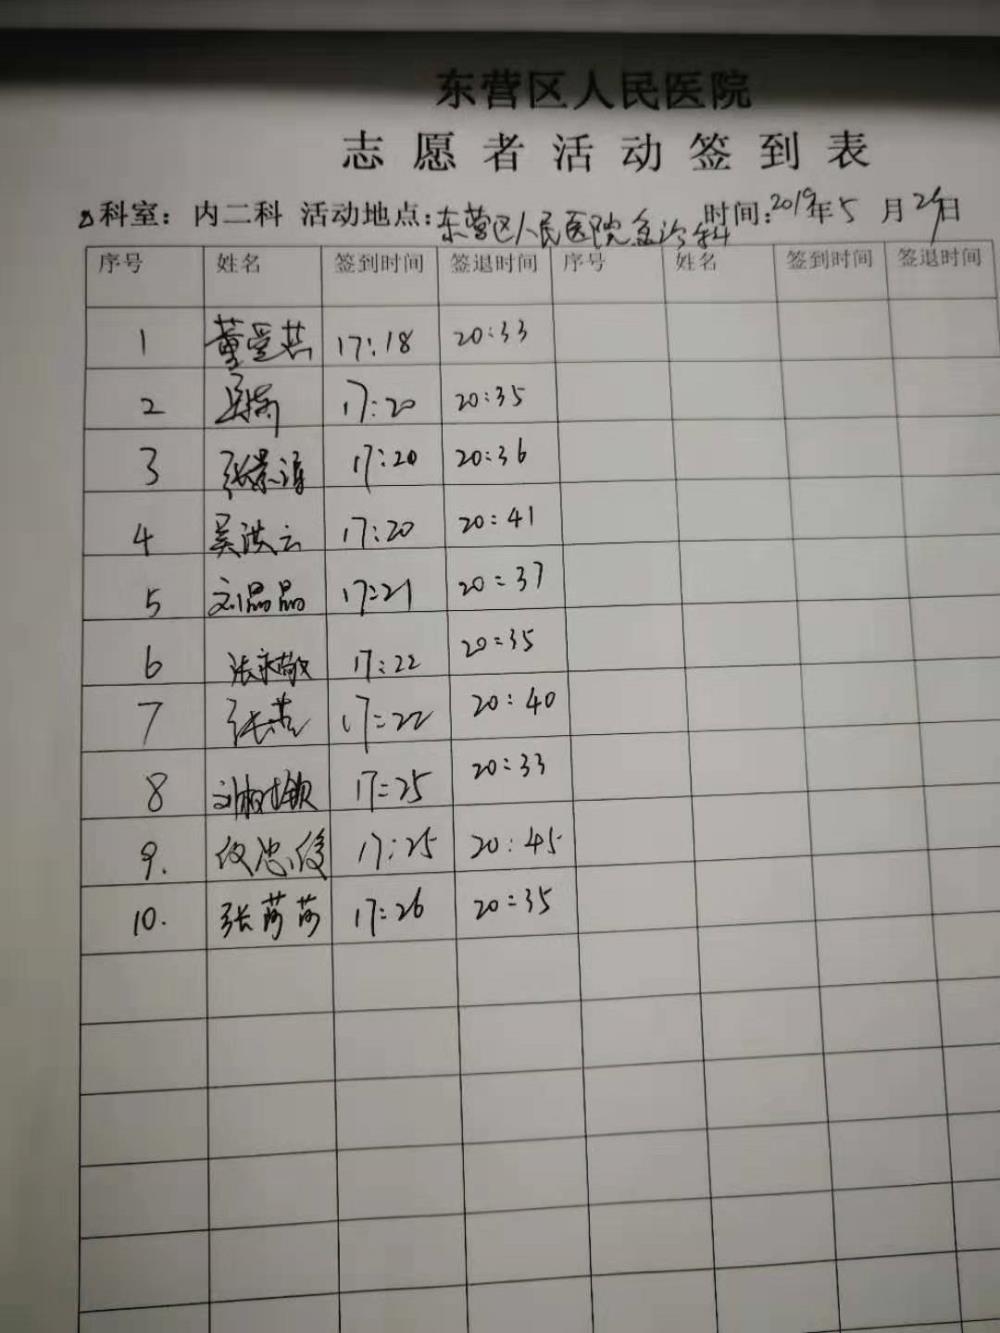 东营区人民医院
志愿者活动签到表
科室：内二科 活动地点：东营区人民医院急诊科 时间：2019年5月29日
序号 姓名 签到时间 签退时间 序号 姓名 签到时间 签退时间
1 董爱燕 17:18 20:33
2 17:20 20:35
3 张景涛 17:20 20:36
4 吴洪云 17:20 20:41
5 刘晶晶 17:21 20:37
6 张永敬 17:22 20:35
7 张 17:22 20:40
8 刘树钦 17:25 20:33
9. 忠俊 17:25 20:45
10. 张莎莎 17:26 20:35